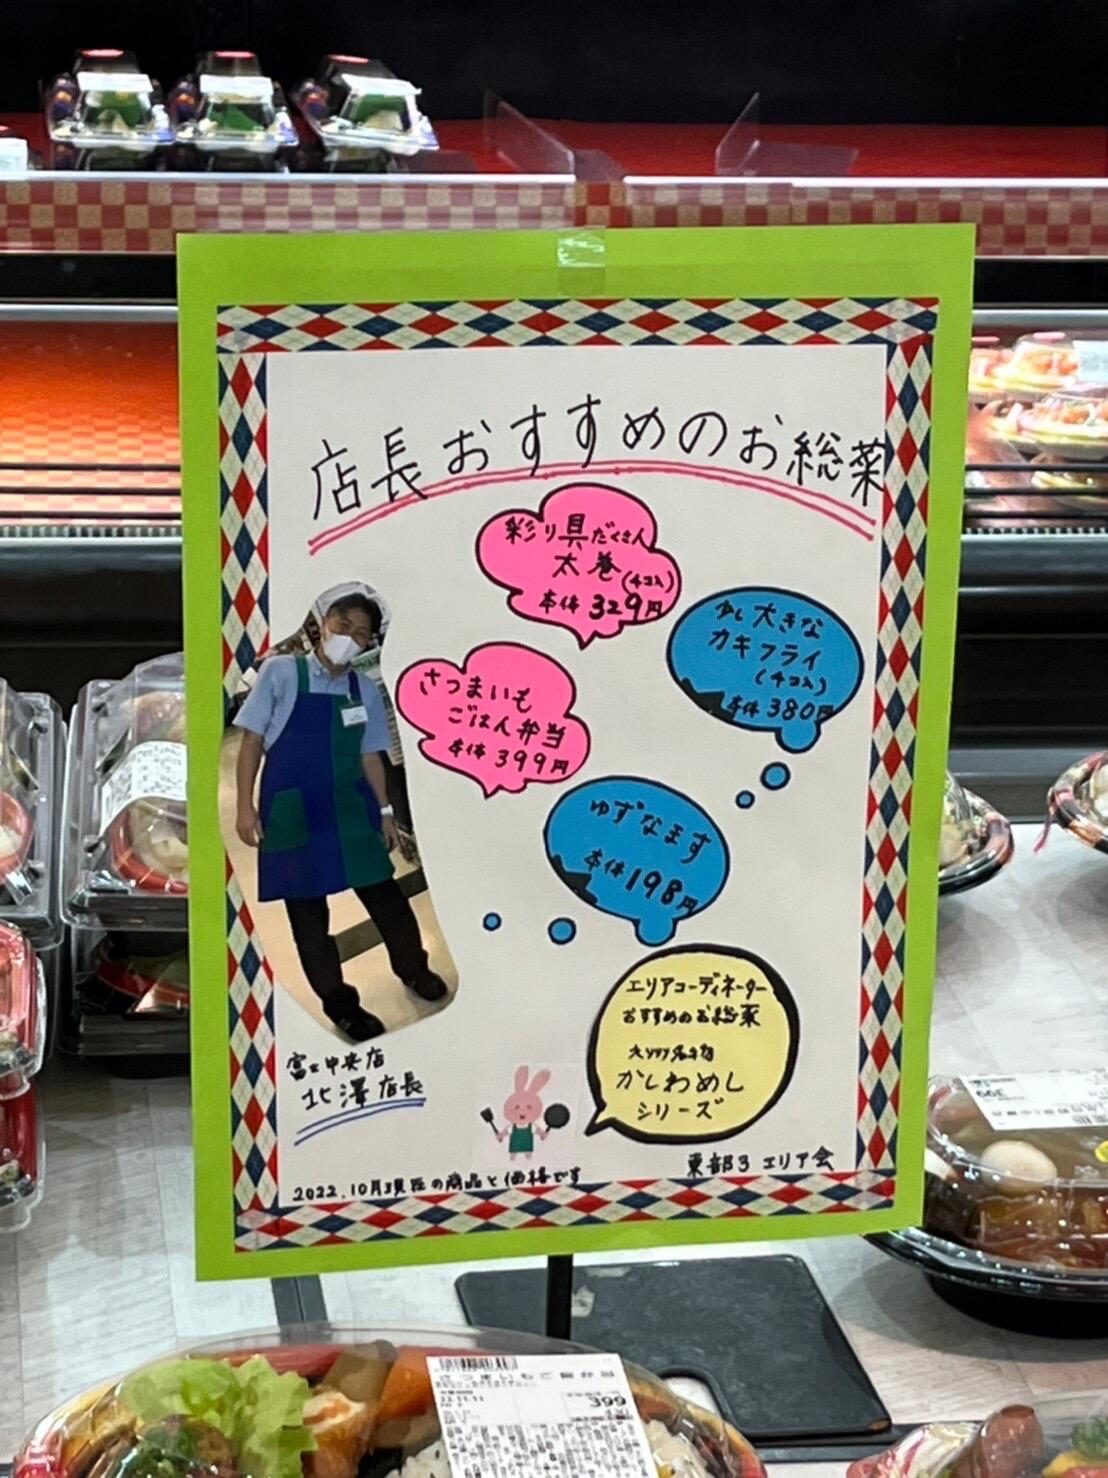 店長おすすめのお総菜
彩り具だくさん
太巻(4コ入)
本体329円
少し大きな
カキフライ
(4コ入)
本体380円
さつまいも
ごはん弁当
本体399円
ゆずなます
本体198円
エリアコーディネーター
おすすめのお総菜
かしわめし
シリーズ
富士中央店
北澤店長
東部3エリア会
2022.10月現在の商品と価格です
399